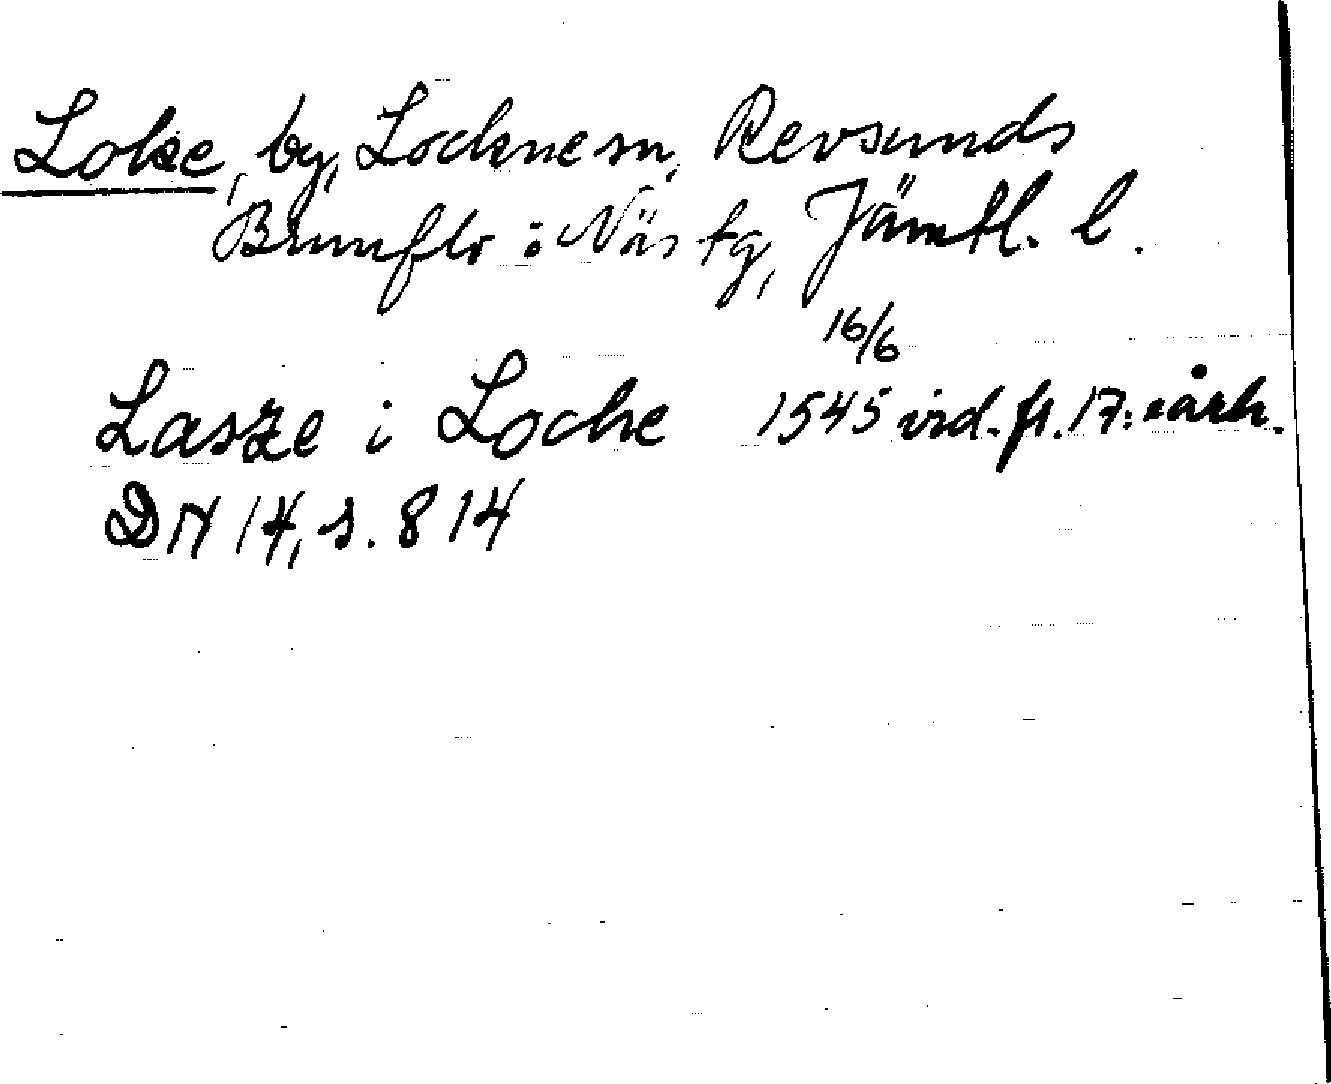 Loke, by, Lockne sn, Revsunds
Brunflo o Näs tg, Jämtl. l.
16/6
Lasze i Locke 1545 vid. fr. 17:e årh.
DN 14, s. 814